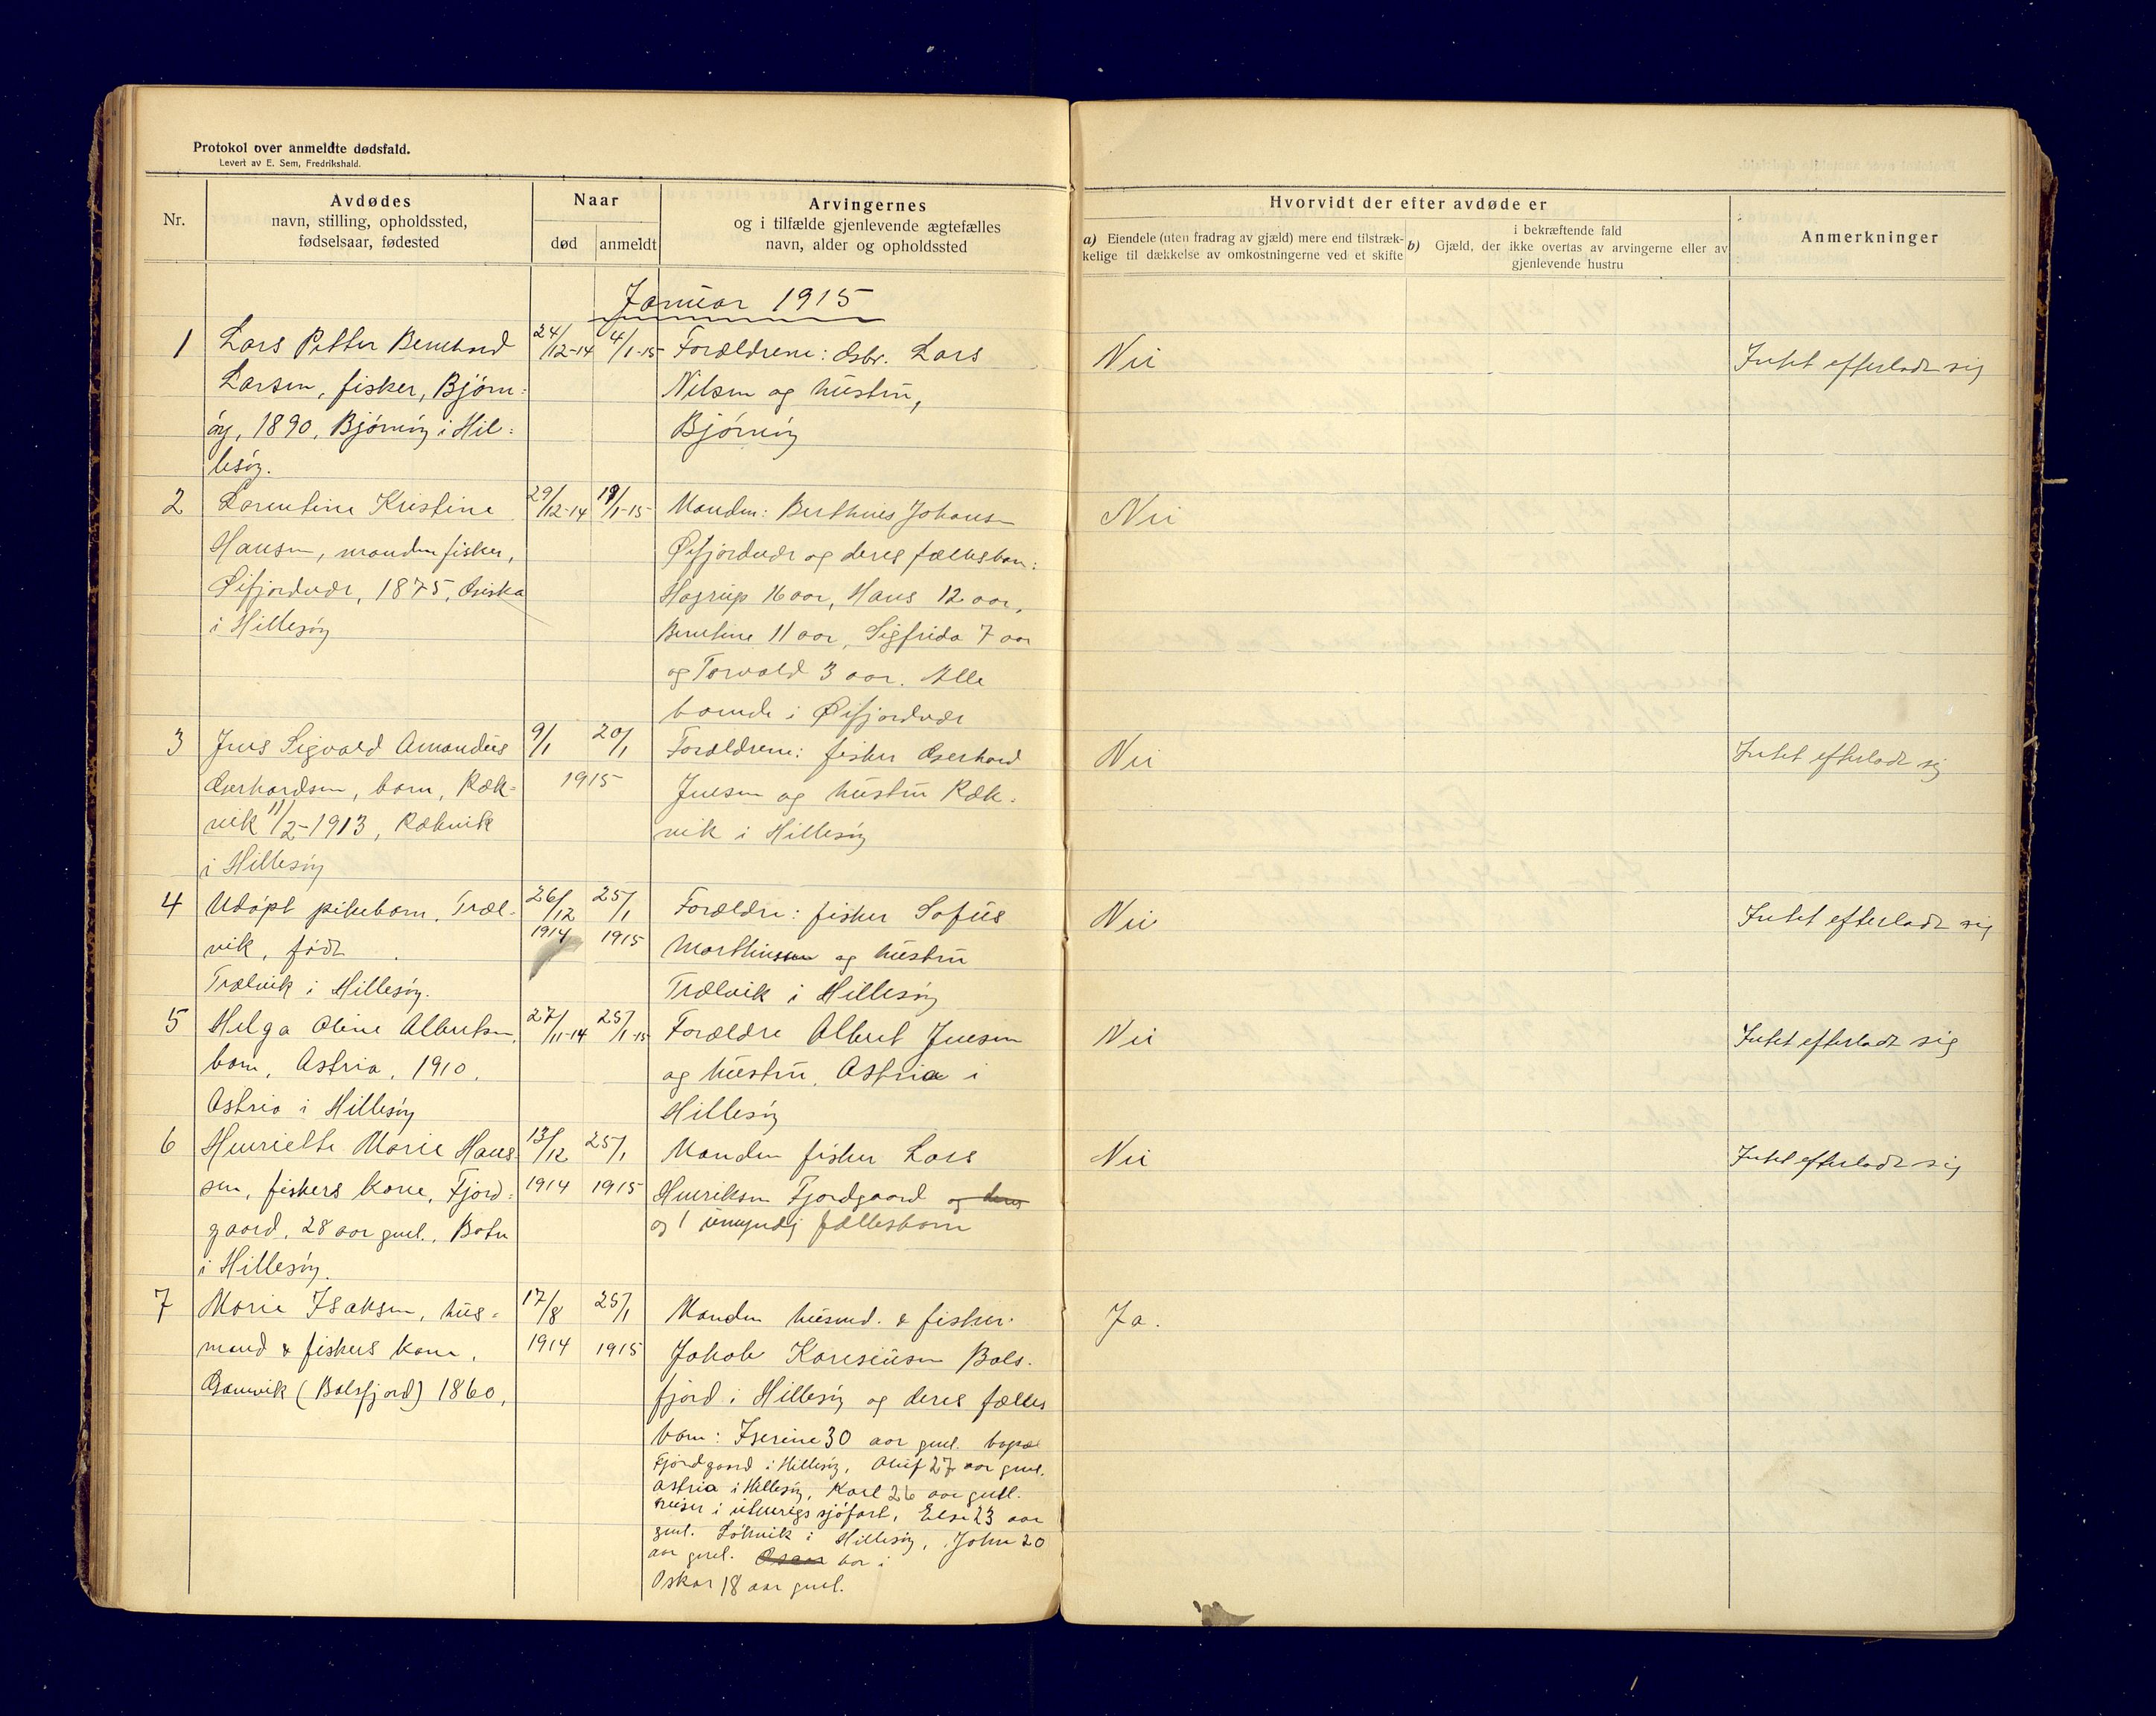 Protokol over anmeldte dødsfald.
Levert av E. Sem, Fredrikshald.
Nr.
Avdødes
navn, stilling, opholdssted,
fødselsaar, fødested
Naar
død
anmeldt
Arvingernes
og i tilfælde gjenlevende ægtefælles
navn, alder og opholdssted
Hvorvidt der efter avdøde er
a) Eiendele (uten fradrag av gjæld) mere end tilstræk-
kelige til dækkelse av omkostningerne ved et skifte
i bekræftende fald
b) Gjæld, der ikke overtas av arvingerne eller av
gjenlevende hustru
Anmerkninger
Januar 1915
1
Lars Petter Bernhard
Larsen, fisker, Bjørn-
øy, 1890, Bjørnøy i Hil-
lesøy.
24/12-14
4/1-15
Forældrene: gbr. Lars
Nilsen og hustru,
Bjørnøy
Nei
Intet efterladt sig
2
Lorentine Kristine
Hansen, manden fisker,
Øifjordvær, 1875,
i Hillesøy
29/12-14
19/1-15
Manden: Bertheus Johansen
Øifjordvær og deres fællesbarn:
Hagrup 16 aar, Hans 12 aar,
Berntine 11 aar, Sigfrida 7 aar
og Torvald 3 aar. Alle
boende i Øifjordvær
Nei
3
Jens Sigvald Amandus
Gerhardsen, barn, Ræk-
vik 11/2-1913, Rækvik
i Hillesøy
9/1
20/1
1915
Forældrene: fisker Gerhard
Jensen og hustru Ræk-
vik i Hillesøy
Nei
Intet efterladt sig
4
Udøpt pikebarn. Træl-
vik, født .
Trælvik i Hillesøy.
26/12
1914
25/1
1915
Forældre: fisker Sofus
Marthinssen og hustru
Trælvik i Hillesøy
Nei
Intet efterladt sig
5
Helga Oline Albertsen,
barn, Astria, 1910,
Astria i Hillesøy
27/11-14
25/1-15
Forældre Albert Jensen
og hustru, Astria i
Hillesøy
Nei
Intet efterladt sig
6
Henriette Marie Han-
sen, fiskers kone, Fjord-
gaard, 28 aar gml., Botn
i Hillesøy.
13/12
1914
25/1
1915
Manden fisker Lars
Henriksen Fjordgaard og deres
og 1 umyndig fællesbarn
Nei
Intet efterladt sig
7
Marie Isaksen, hus-
mand & fiskers kone,
(Balsfjord) 1860,
17/8
1914
25/1
1915
Manden husmd. & fisker
Jakob Bals-
fjord i Hillesøy og deres fælles
barn: 30 aar gml. bopæl
Fjordgaard i Hillesøy, Oluf 27 aar gml.
Astria i Hillesøy, Karl 26 aar gml.
reiser i utenrigs sjøfart, Else 23 aar
gml. Løkvik i Hillesøy, John 20
aar gml. bor i
Oskar 18 aar gml.
Ja.